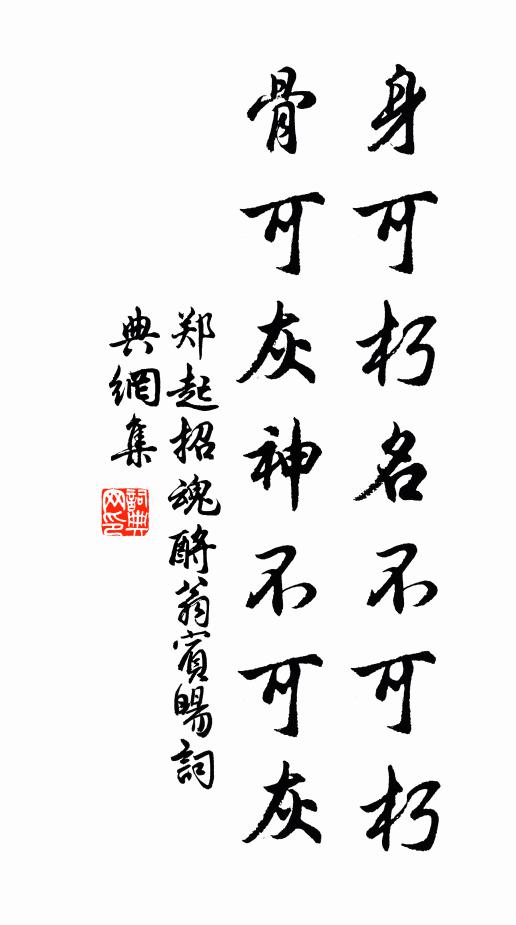 身可朽名不可朽
骨可灰神不可灰
郑起招魂酹翁宾旸詞
典網集
詞典網印